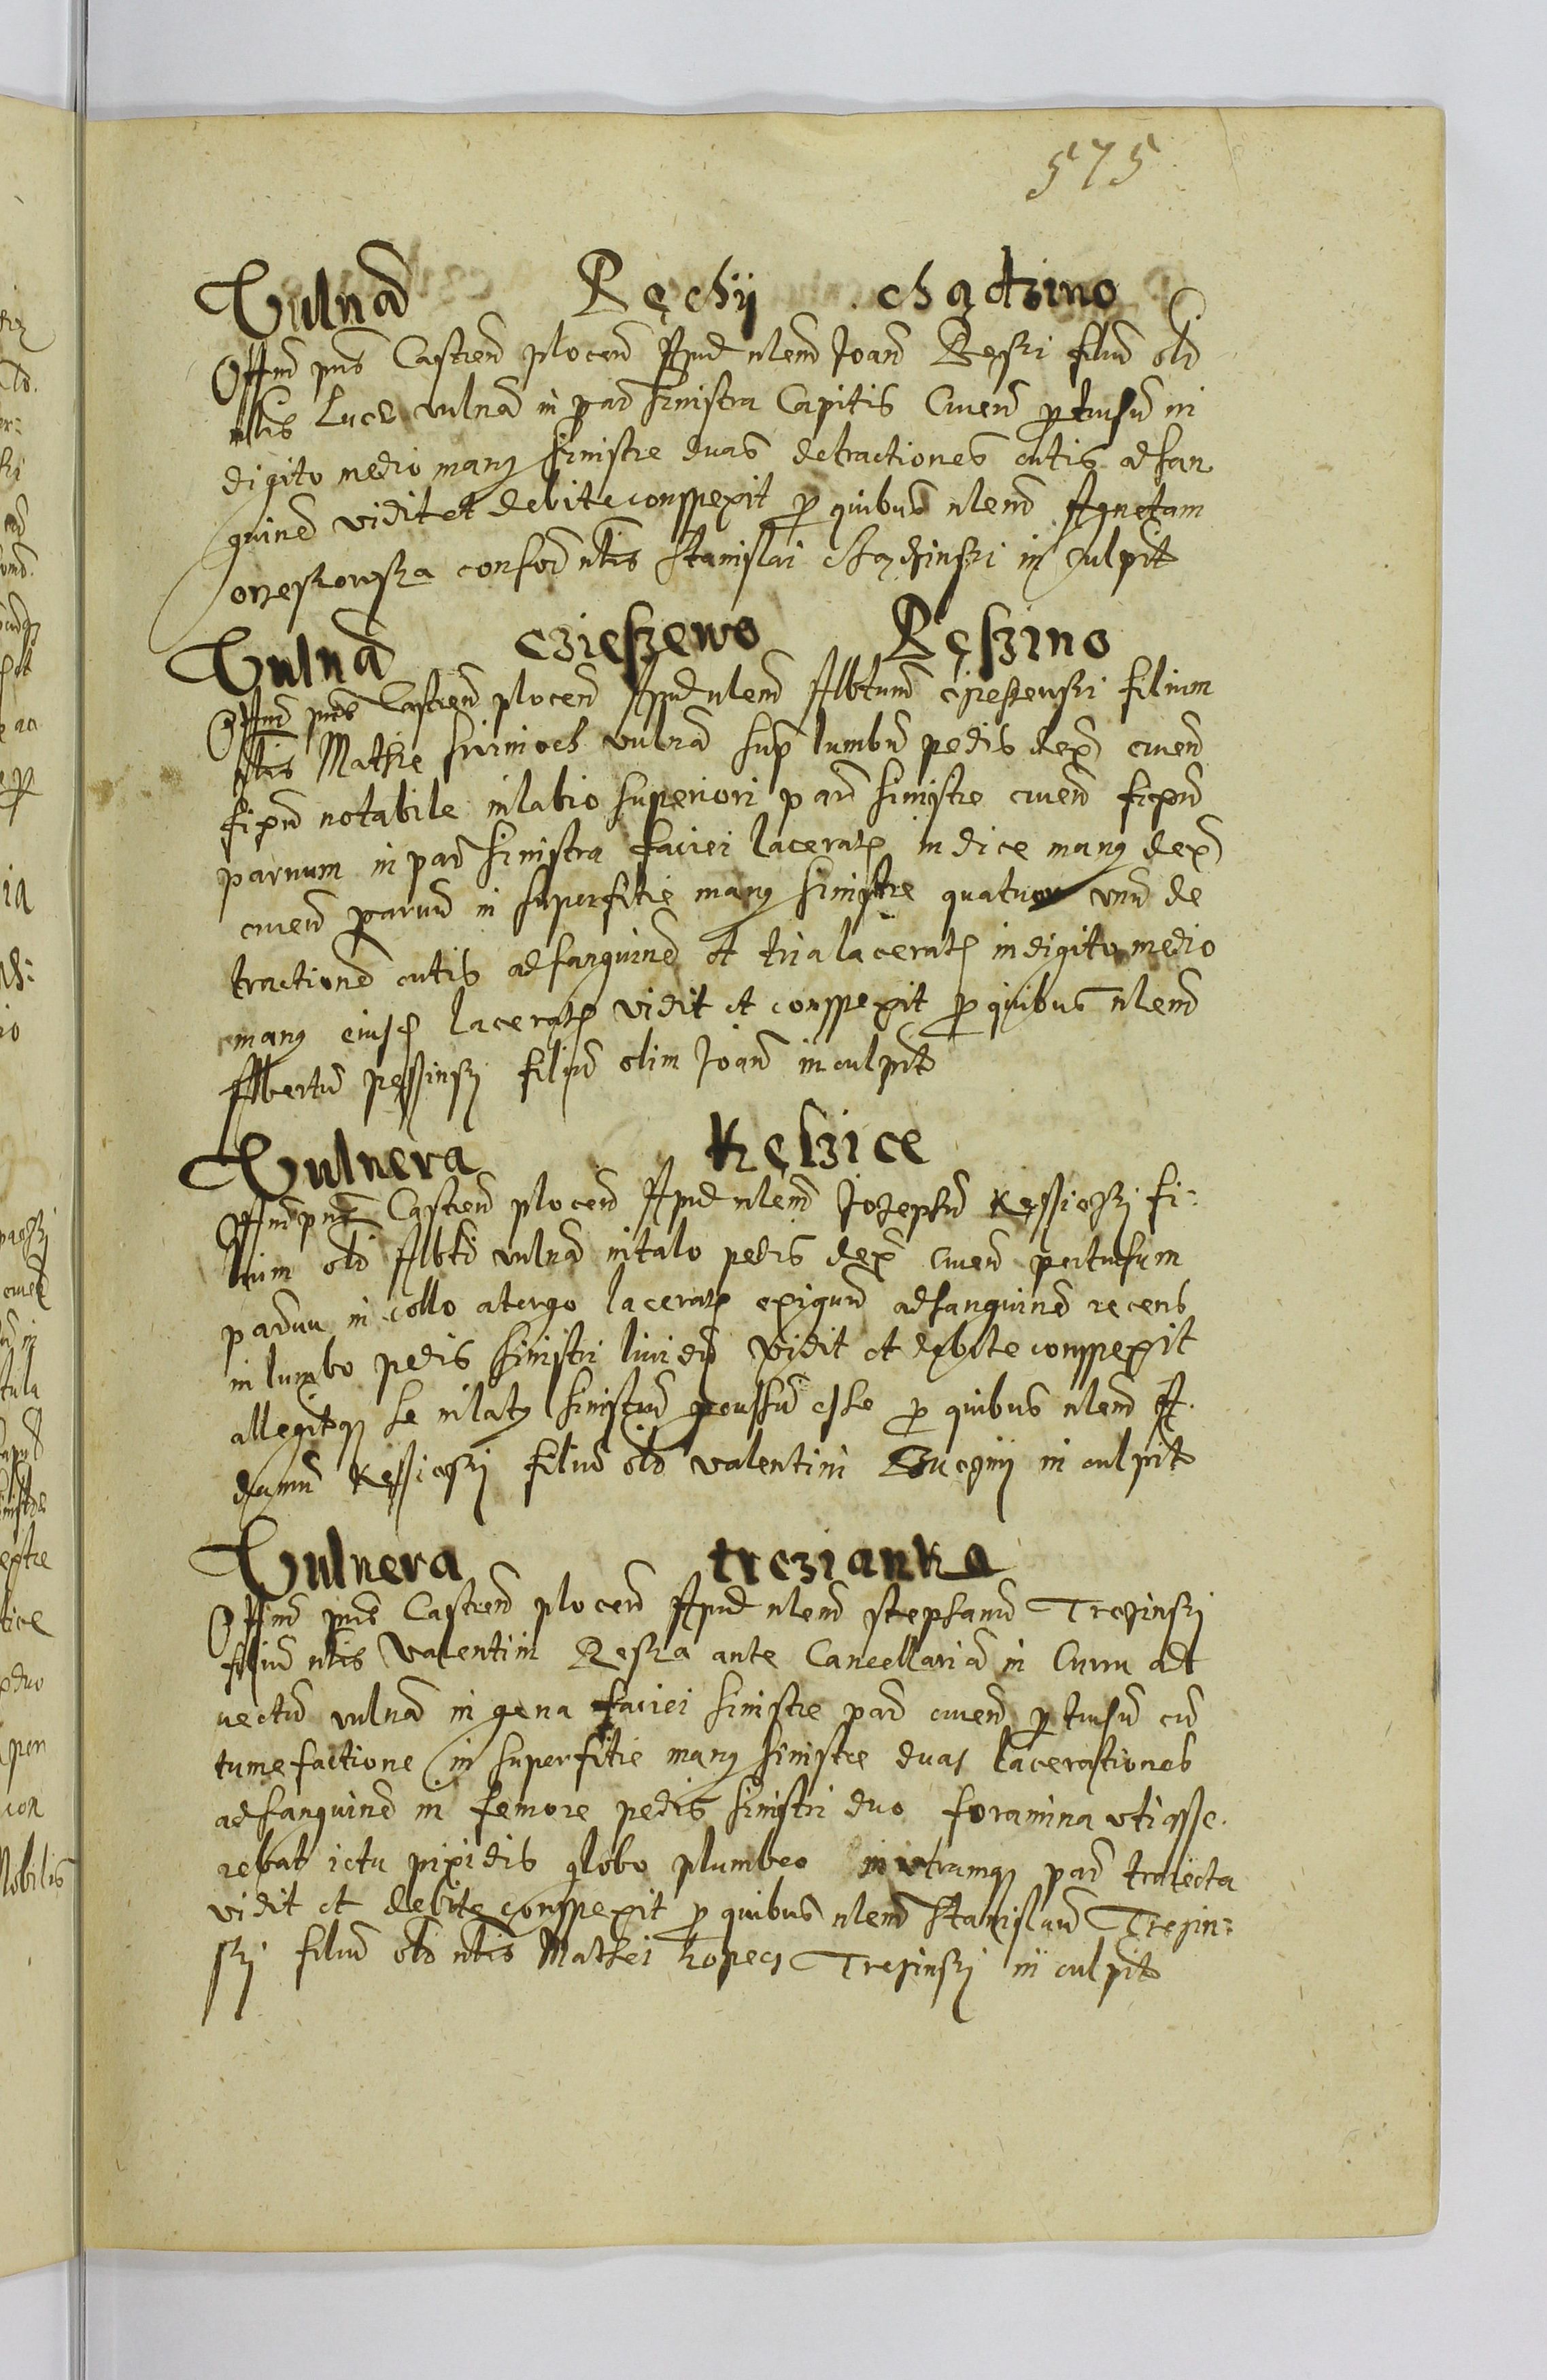 575
Vulnera Ręchij chądzino
Offm pns Castren plocen Apud nlem Joan Reski filiu oli
nlis Luce vulna in par sinistra Capitis Cruen ptusu in
digito medio man9 sinistre duas detractiones cutis ad san
guine vidit et debite conspexit p quibus nlem Agnetam
consor nlis Stanislai Chądzinski inculpit
Vulna czieszewo Ręszino
Offm pns Castren plocen Apud nlem Albtum filium
nlis Mathie vulna sup lumbu pedis dex cruen
fixu notabile in labio superiori par sinistre cruen fixu
paruum in par sinistra faciei lacerat indice man9 dex
cruen paruu in superfitie man9 sinistre quatuor vnu de
tractione cutis ad sanguine et tria lacerat in digito medio
man9 eiusd lacerat vidit et conspexit p quibus nlem
Albertu filiu olim Joan inculpit
Vulnera Kęszice
Offm pns Castren plocen Apud nlem Josephu Kęssicski fi:
lium oli Albti vulna in talo pedis dex cruen pertusum
paruu in collo a tergo lacerat exiguu ad sanguine recens
in lumbo pedis sinistri liuidu vidit et debite conspexit
allegitq3 se in lat9 sinistru pcussu esse p quibus nlem A.
damu Kęssicski filiu oli valentini inculpit
Vulnera trczianka
Offm pns Castren plocen Apud nlem stephanu Trczinski
filiu nlis Valentini Reska ante Cancellaria in Curru ad
uectu vulna in gena faciei sinistre par cruen ptusu cu
tumefactione in superfitie man9 sinistre duas lacerationes
ad sanguine in femore pedis sinistri duo foramina vti asse.
rebat ictu pixidis globo plumbeo in vtramq3 par traiecta
vidit et debite conspexit p quibus nlem Stanislau Trczin:
ski filiu oli nlis Mathei Kopecz Trczinski inculpit